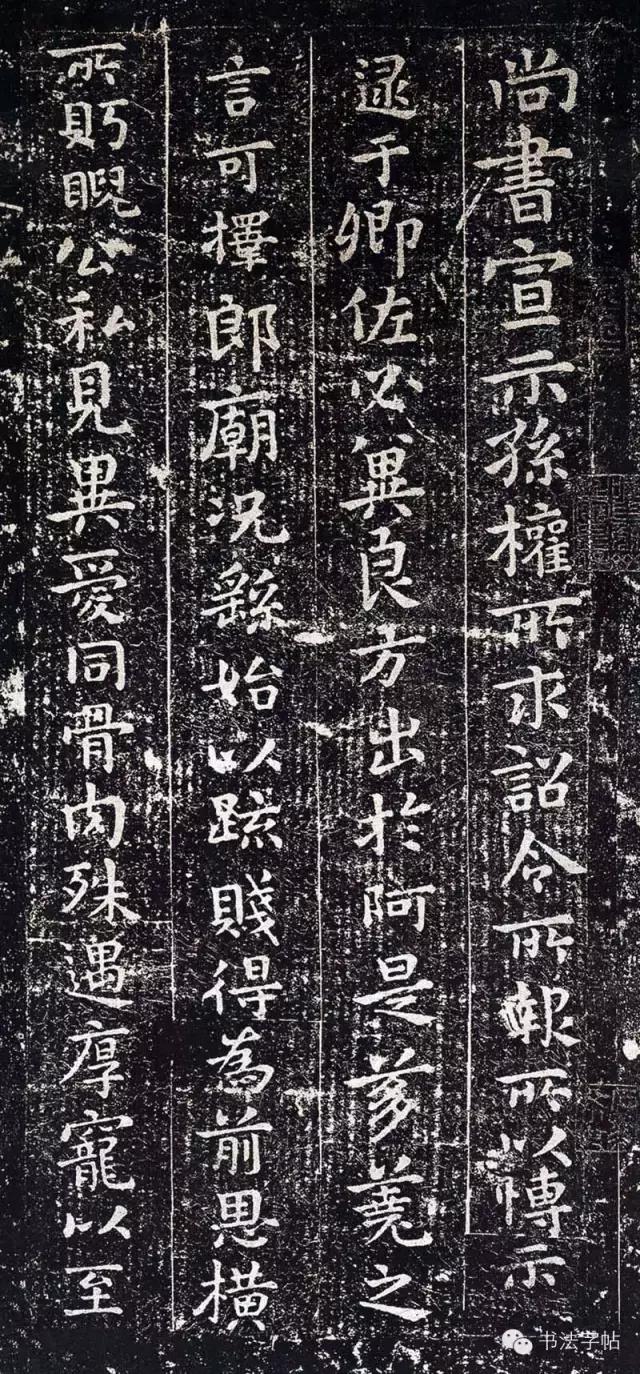 尚書宣示孫權所求詔令所報所以愽示
逮于卿佐必冀良方出於阿是芻蕘之
言可擇郎廟況繇始以踈賤得為前恩橫
所眄睨公私見異愛同骨肉殊遇厚寵以至
书法字帖